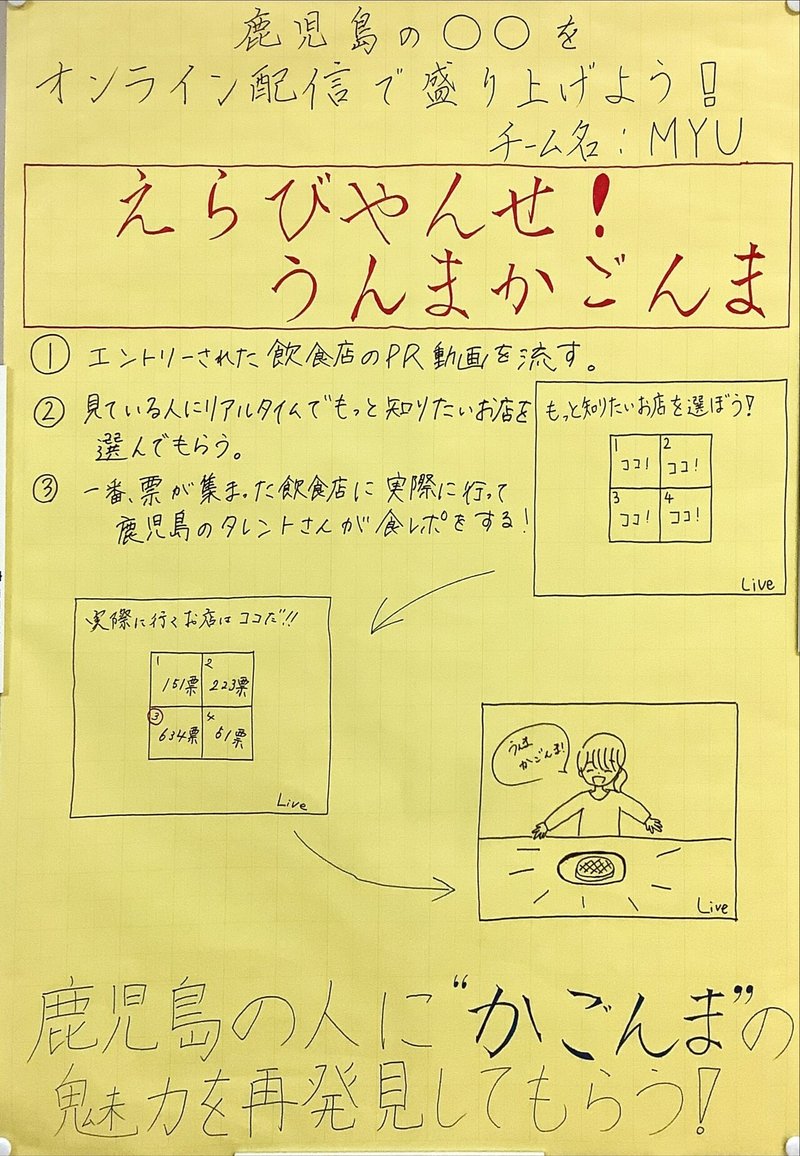 鹿児島の○○を
オンライン配信で盛り上げよう!
チーム名:MYU
えらびやんせ!
うんまかごんま
① エントリーされた飲食店のPR動画を流す。
② 見ている人にリアルタイムでもっと知りたいお店を
選んでもらう。
③ 一番、票が集まった飲食店に実際に行って
鹿児島のタレントさんが食レポをする!
もっと知りたいお店を選ぼう!
1 ココ! 2 ココ!
3 ココ! 4 ココ!
Live
実際に行くお店はココだ!!
1 151票 2 223票
③ 634票 4 61票
Live
うんま
かごんま!
Live
鹿児島の人に“かごんま”の
魅力を再発見してもらう!